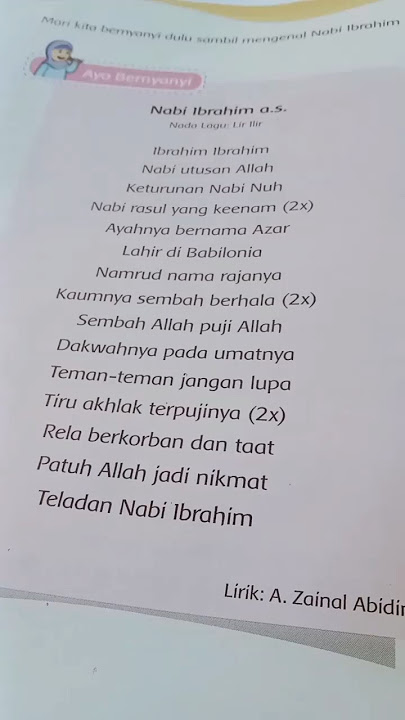 Mari kita bernyanyi dulu sambil mengenal Nabi Ibrahim
Ayo Bernyanyi
Nabi Ibrahim a.s.
Nada Lagu: Lir Ilir
Ibrahim Ibrahim
Nabi utusan Allah
Keturunan Nabi Nuh
Nabi rasul yang keenam (2x)
Ayahnya bernama Azar
Lahir di Babilonia
Namrud nama rajanya
Kaumnya sembah berhala (2x)
Sembah Allah puji Allah
Dakwahnya pada umatnya
Teman-teman jangan lupa
Tiru akhlak terpujinya (2x)
Rela berkorban dan taat
Patuh Allah jadi nikmat
Teladan Nabi Ibrahim
Lirik: A. Zainal Abidin